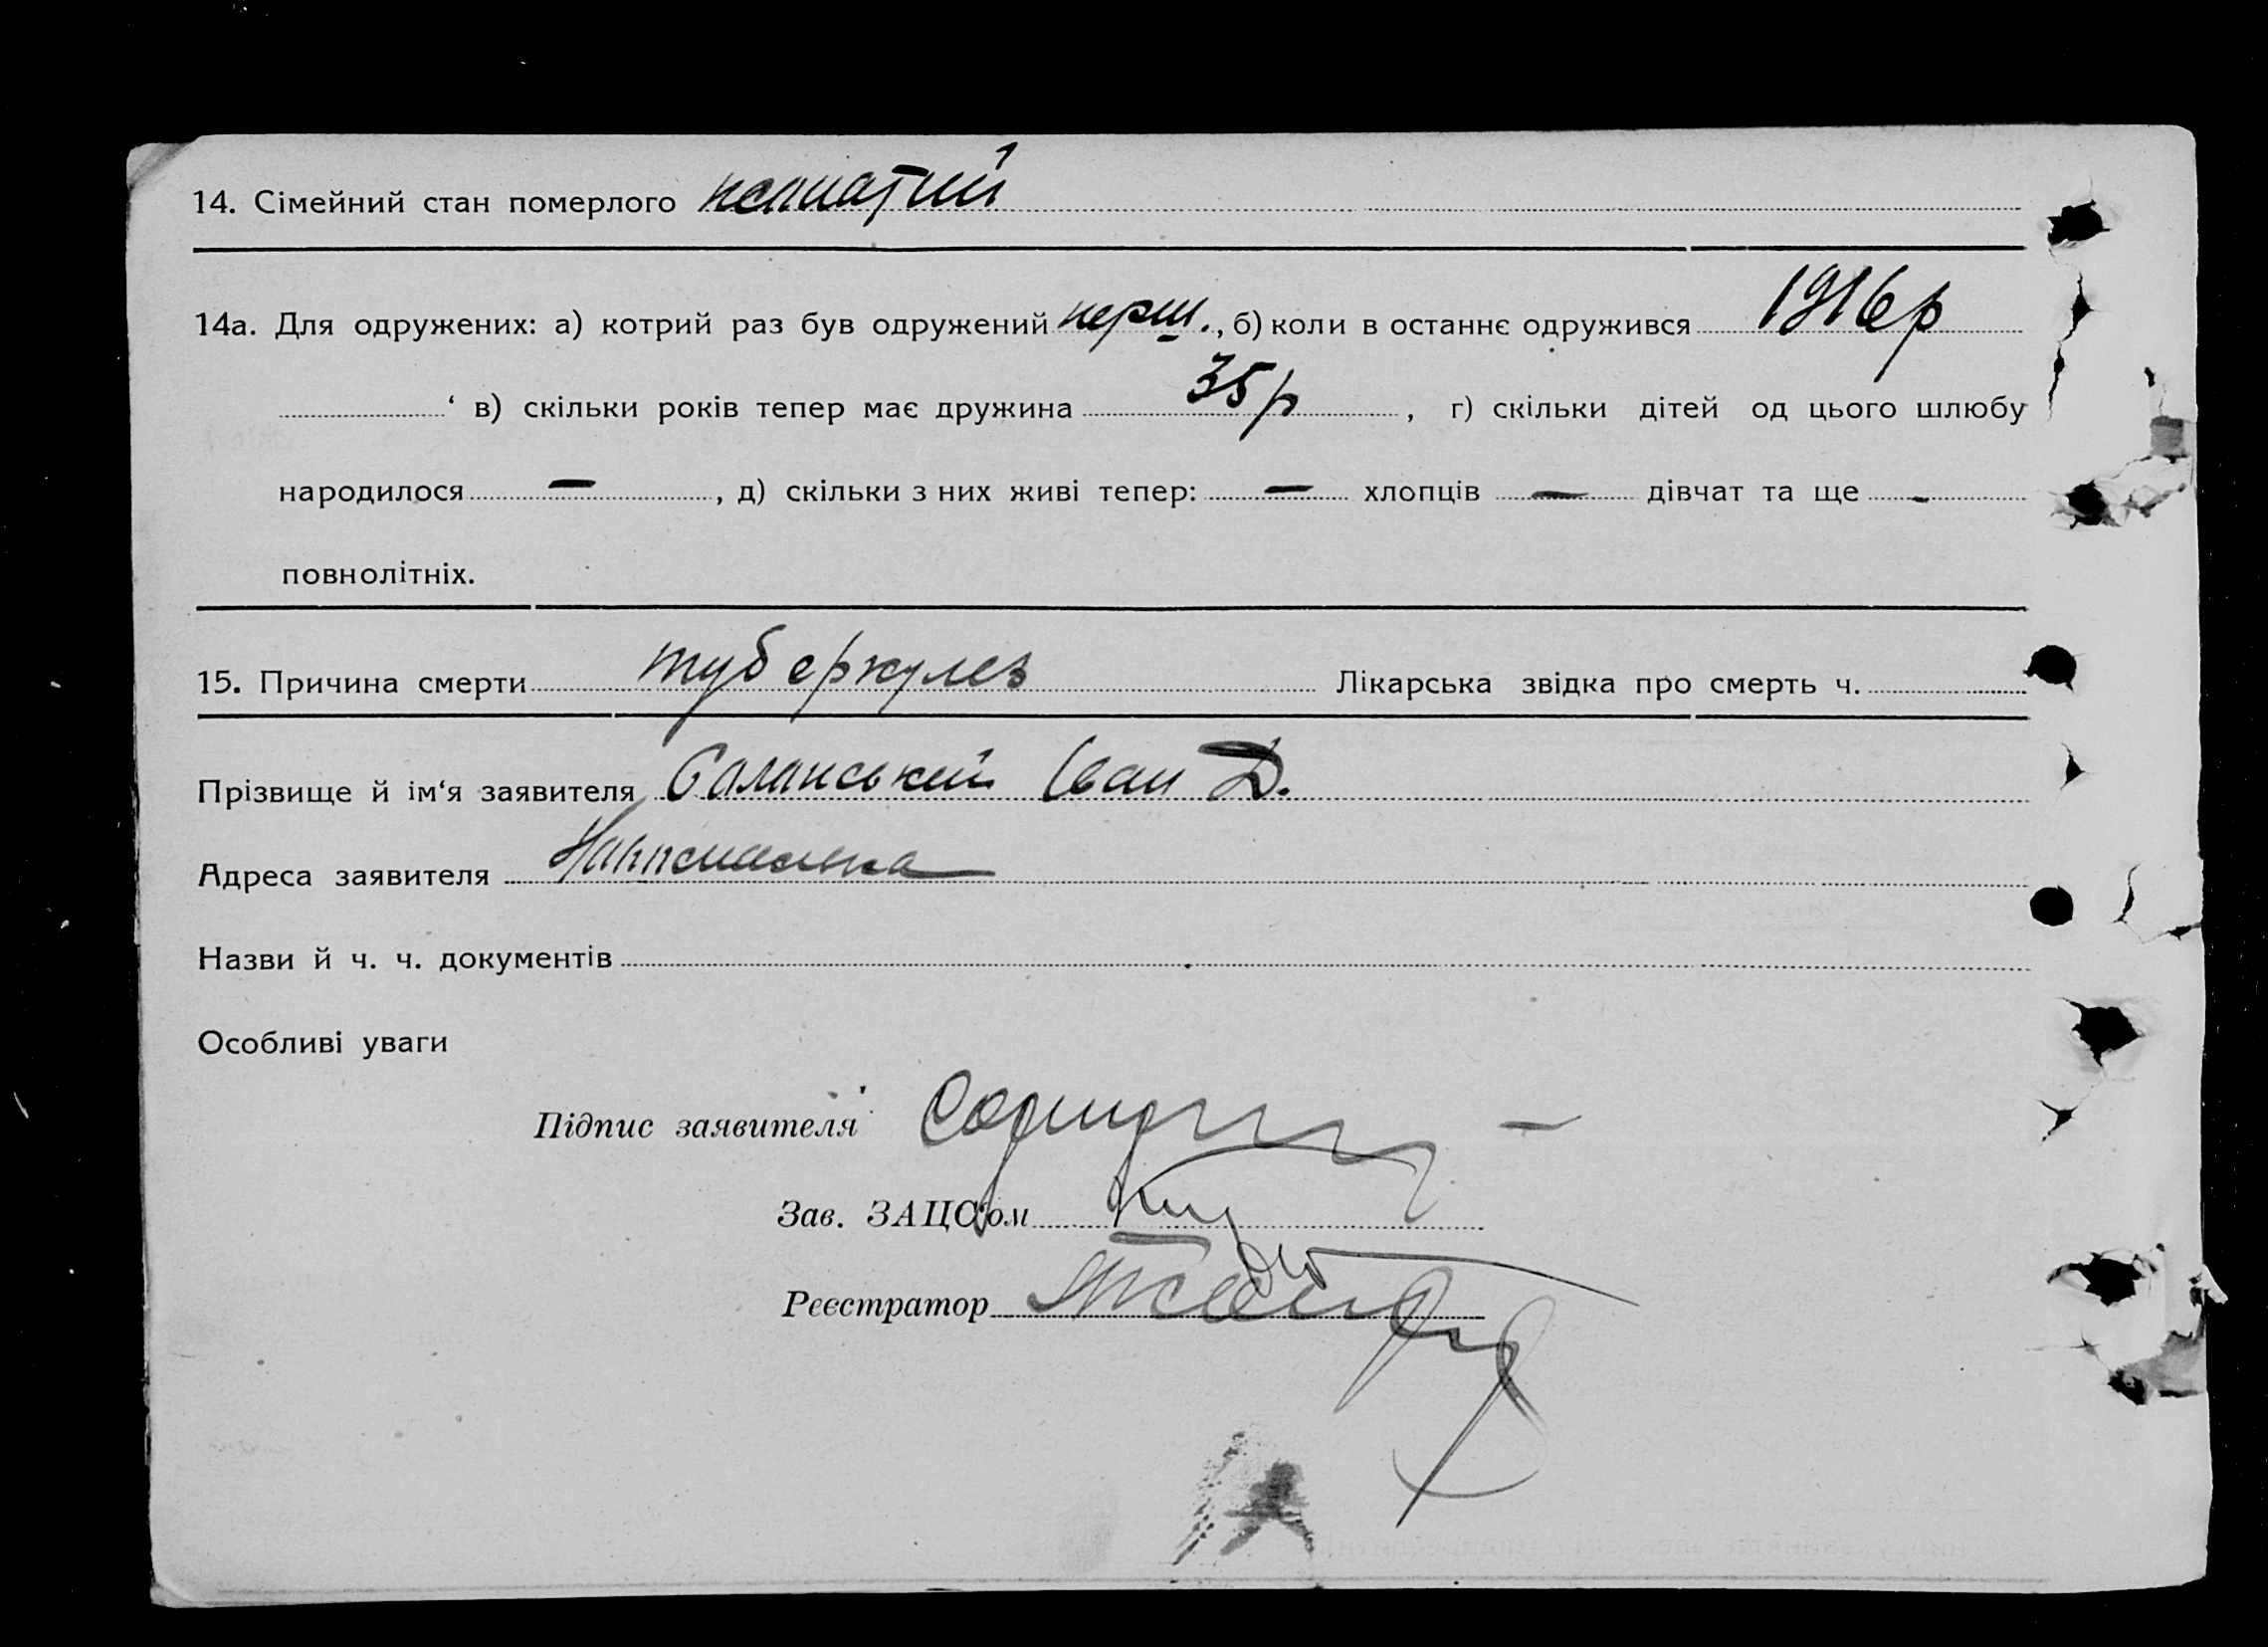 14. Сімейний стан померлого
14а. Для одружених: а) котрий раз був одружений перш., б) коли в останнє одружився 1916р
‘ в) скільки років тепер має дружина 35р, г) скільки дітей од цього шлюбу
народилося —, д) скільки з них живі тепер: — хлопців — дівчат та ще -
повнолітніх.
15. Причина смерти туберкулез Лікарська звідка про смерть ч.
Прізвище й ім‘я заявителя Іван Д.
Адреса заявителя
Назви й ч. ч. документів
Особливі уваги
Підпис заявителя
Зав. ЗАЦС‘ом
Реєстратор